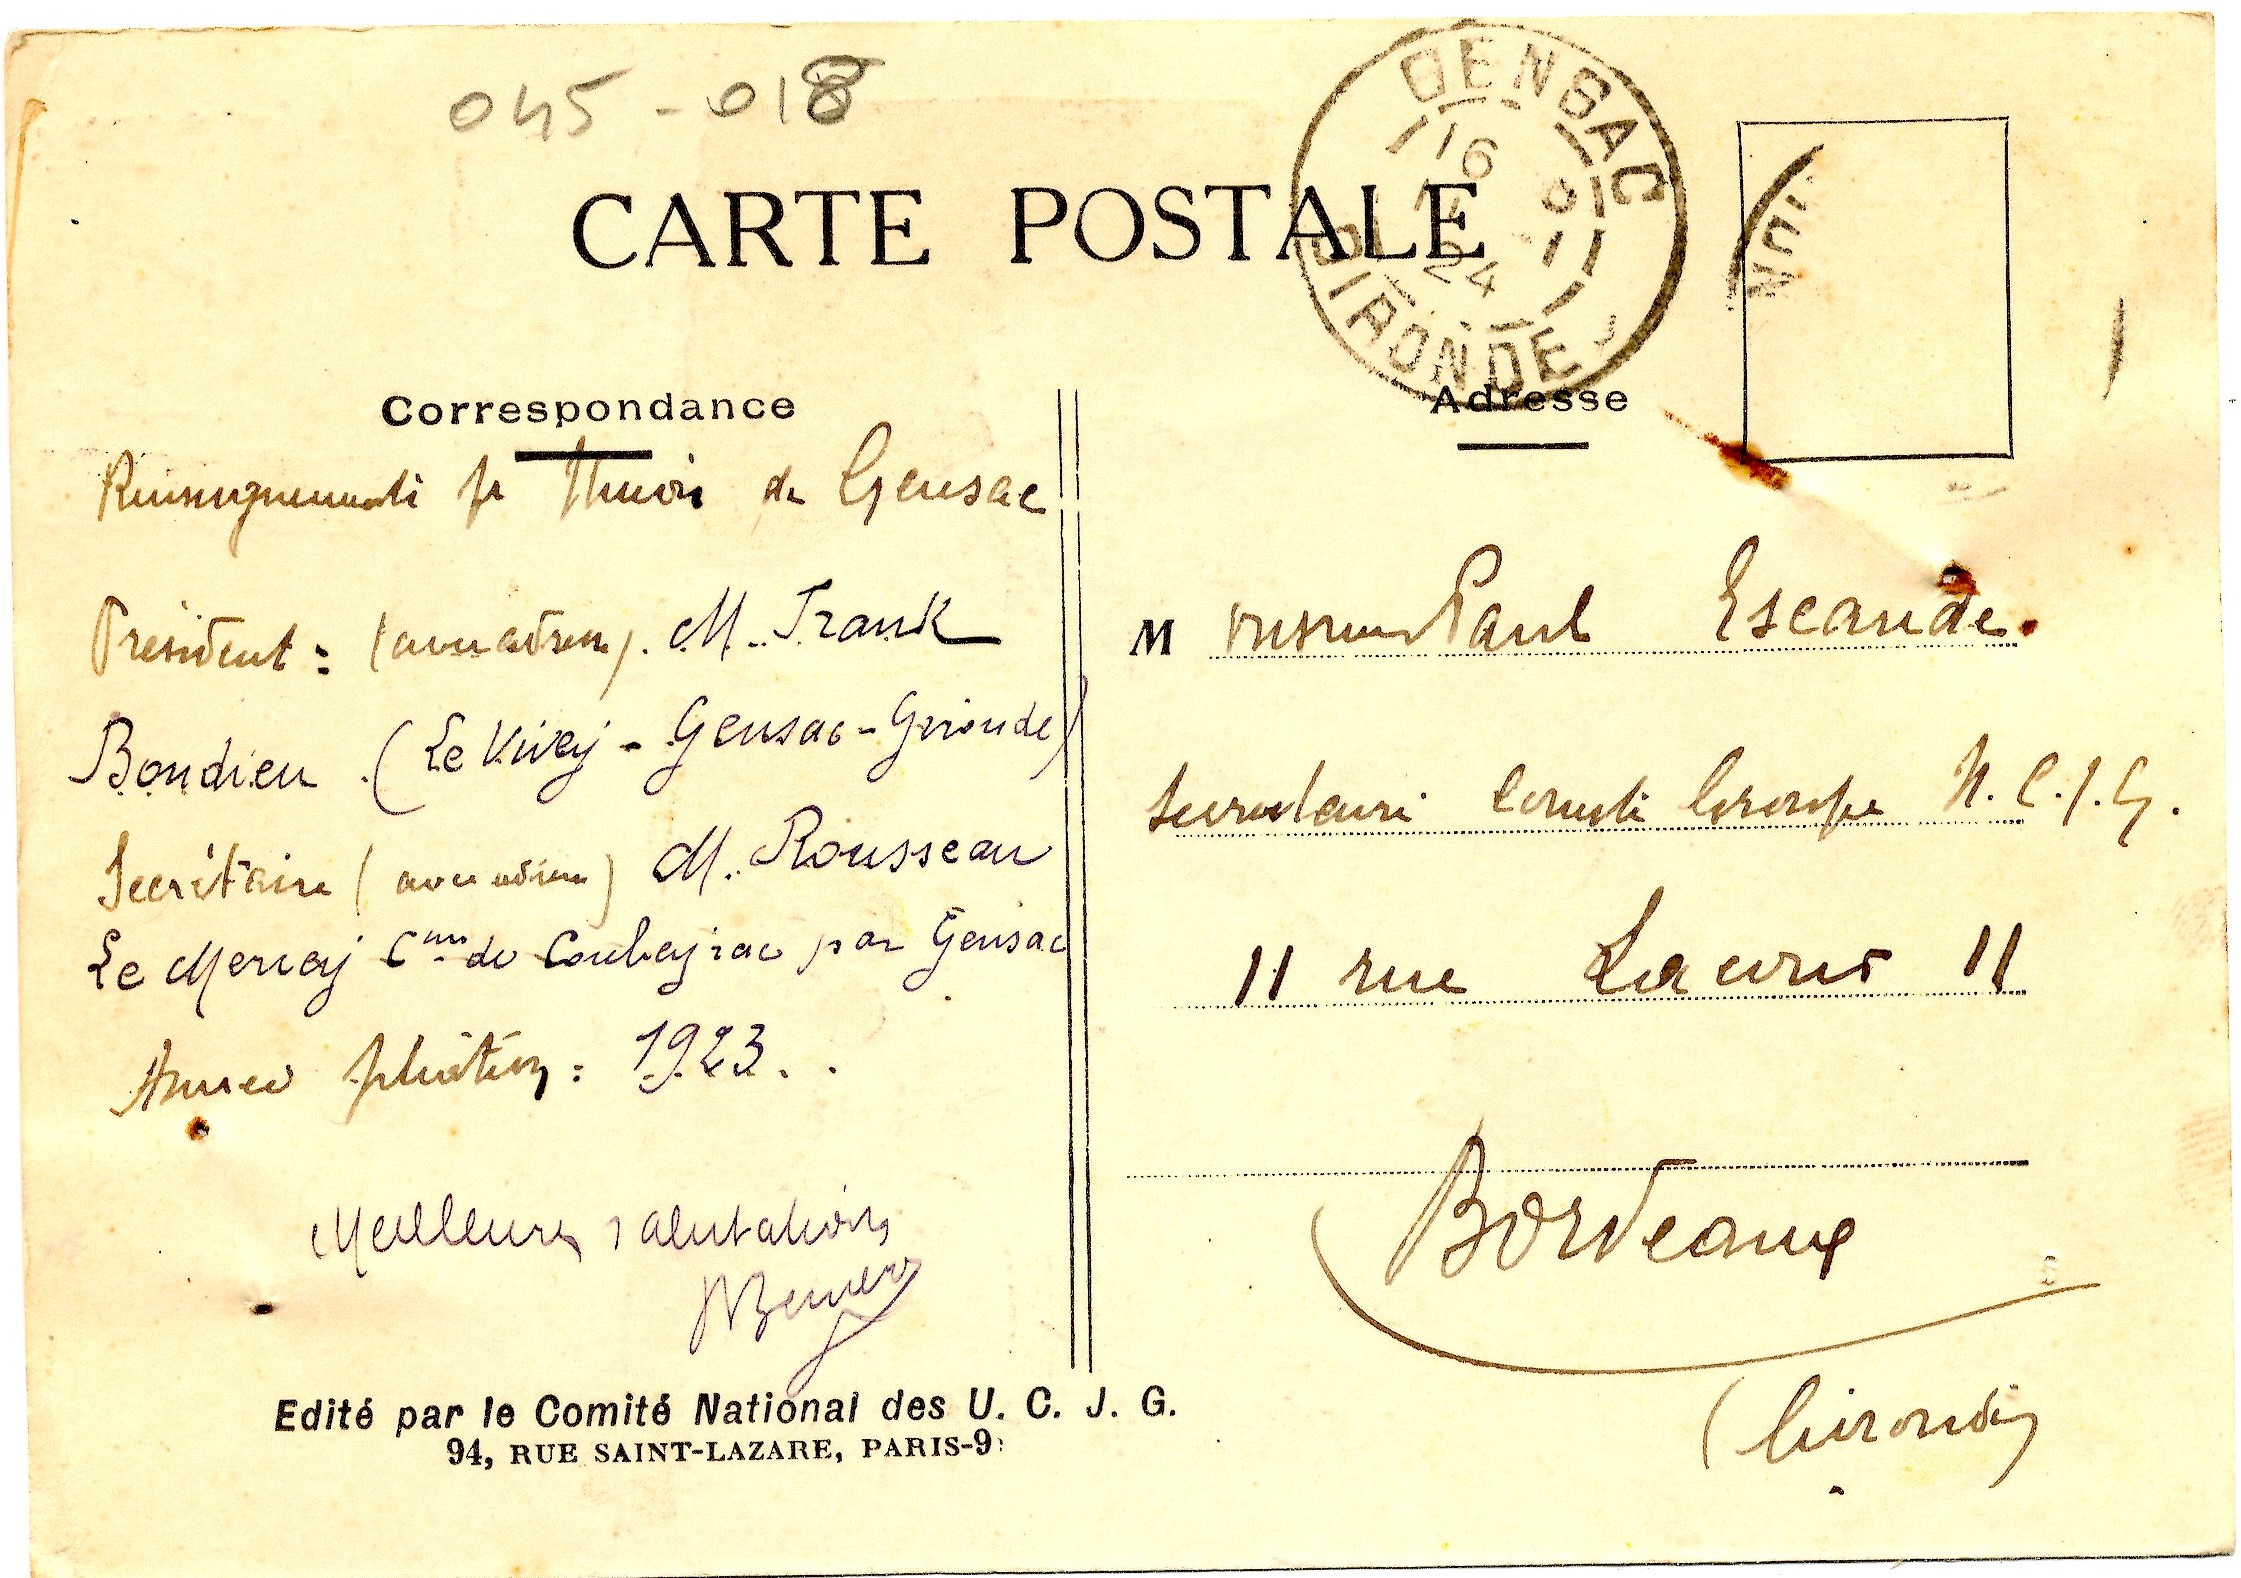 045-018
GENSAC
16
24
GIRONDE
CARTE POSTALE
Correspondance
Renseignements pr Union de Gensac
Président : (avec adresse). M. Frank
Bondieu (Le Vivey - Gensac - Gironde)
Secrétaire (avec adresse) M. Rousseau
Le Mercey Cne de Coubeyrac par Gensac
Année : 1923.
Meilleures salutations
Edité par le Comité National des U. C. J. G.
94, RUE SAINT-LAZARE, PARIS-9
Adresse
M Paul Escande
Comité Groupe U.C.J.G.
11 rue Lacour 11
Bordeaux
(Gironde)